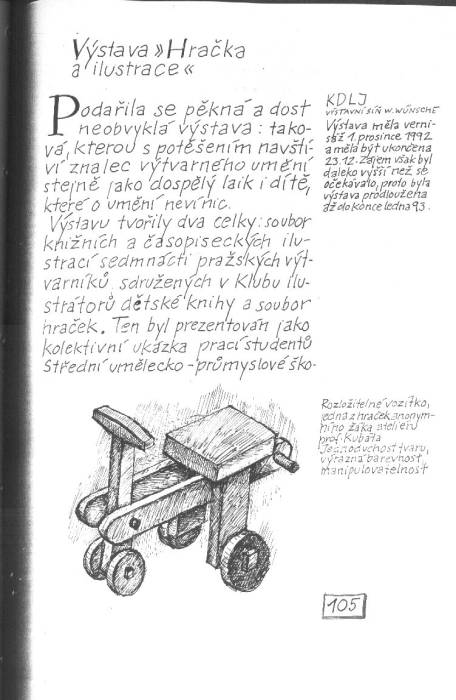 Výstava »Hračka
a ilustrace«
Podařila se pěkná a dost
neobvyklá výstava: tako-
vá, kterou s potěšením navští-
ví znalec výtvarného umění
stejně jako dospělý laik i dítě,
které o umění neví nic.
Výstavu tvořily dva celky: soubor
knižních a časopiseckých ilu-
strací sedmnácti pražských výt-
varníků sdružených v Klubu ilu-
strátorů dětské knihy a soubor
hraček. Ten byl prezentován jako
kolektivní ukázka prací studentů
Střední umělecko-průmyslové ško-
KDLJ
VÝSTAVNÍ SÍŇ W. WÜNSCHE
Výstava měla verni-
sáž 1. prosince 1992
a měla být ukončena
23.12. Zájem však byl
daleko vyšší než se
očekávalo, proto byla
výstava prodloužena
až do konce ledna 93.
Rozložitelné vozítko,
jedna z hraček anonym-
ního žáka ateliéru
prof. Kubáta
Jednoduchost tvaru,
výrazná barevnost,
manipulovatelnost
105